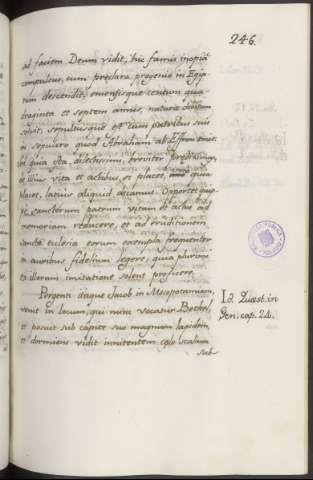 246.
ad faciem Deum vidit, hic famis inopiâ
compulsus, cum præclara progenie in Egip-
tum descendit, emensisque centum qua-
draginta et septem annis, naturæ debitum
solvit, sepultusque est cum patribus suis
in sepulcro quod Abraham ab Effron emit.
Sed quia ita dilectissimi, breviter
de illius vita et actibus, si placet, quæ
latius aliquid dicamus. Oportet quip-
pe sanctorum patrum vitam et actus ad
memoriam reducere, et ad eruditionem
sanctæ ecclesiæ eorum exempla frequenter
in auribus fidelium legere, quia plurimi
ad illorum imitationem solent proficere.
Pergens itaque Jacob in Mesopotamiam,
venit in locum, qui nunc vocatur Bethel,
et posuit sub capite suo magnum lapidem,
et dormiens vidit innitentem cælo scalam
sub
Id. Quæst. in
Gen. cap. 24.